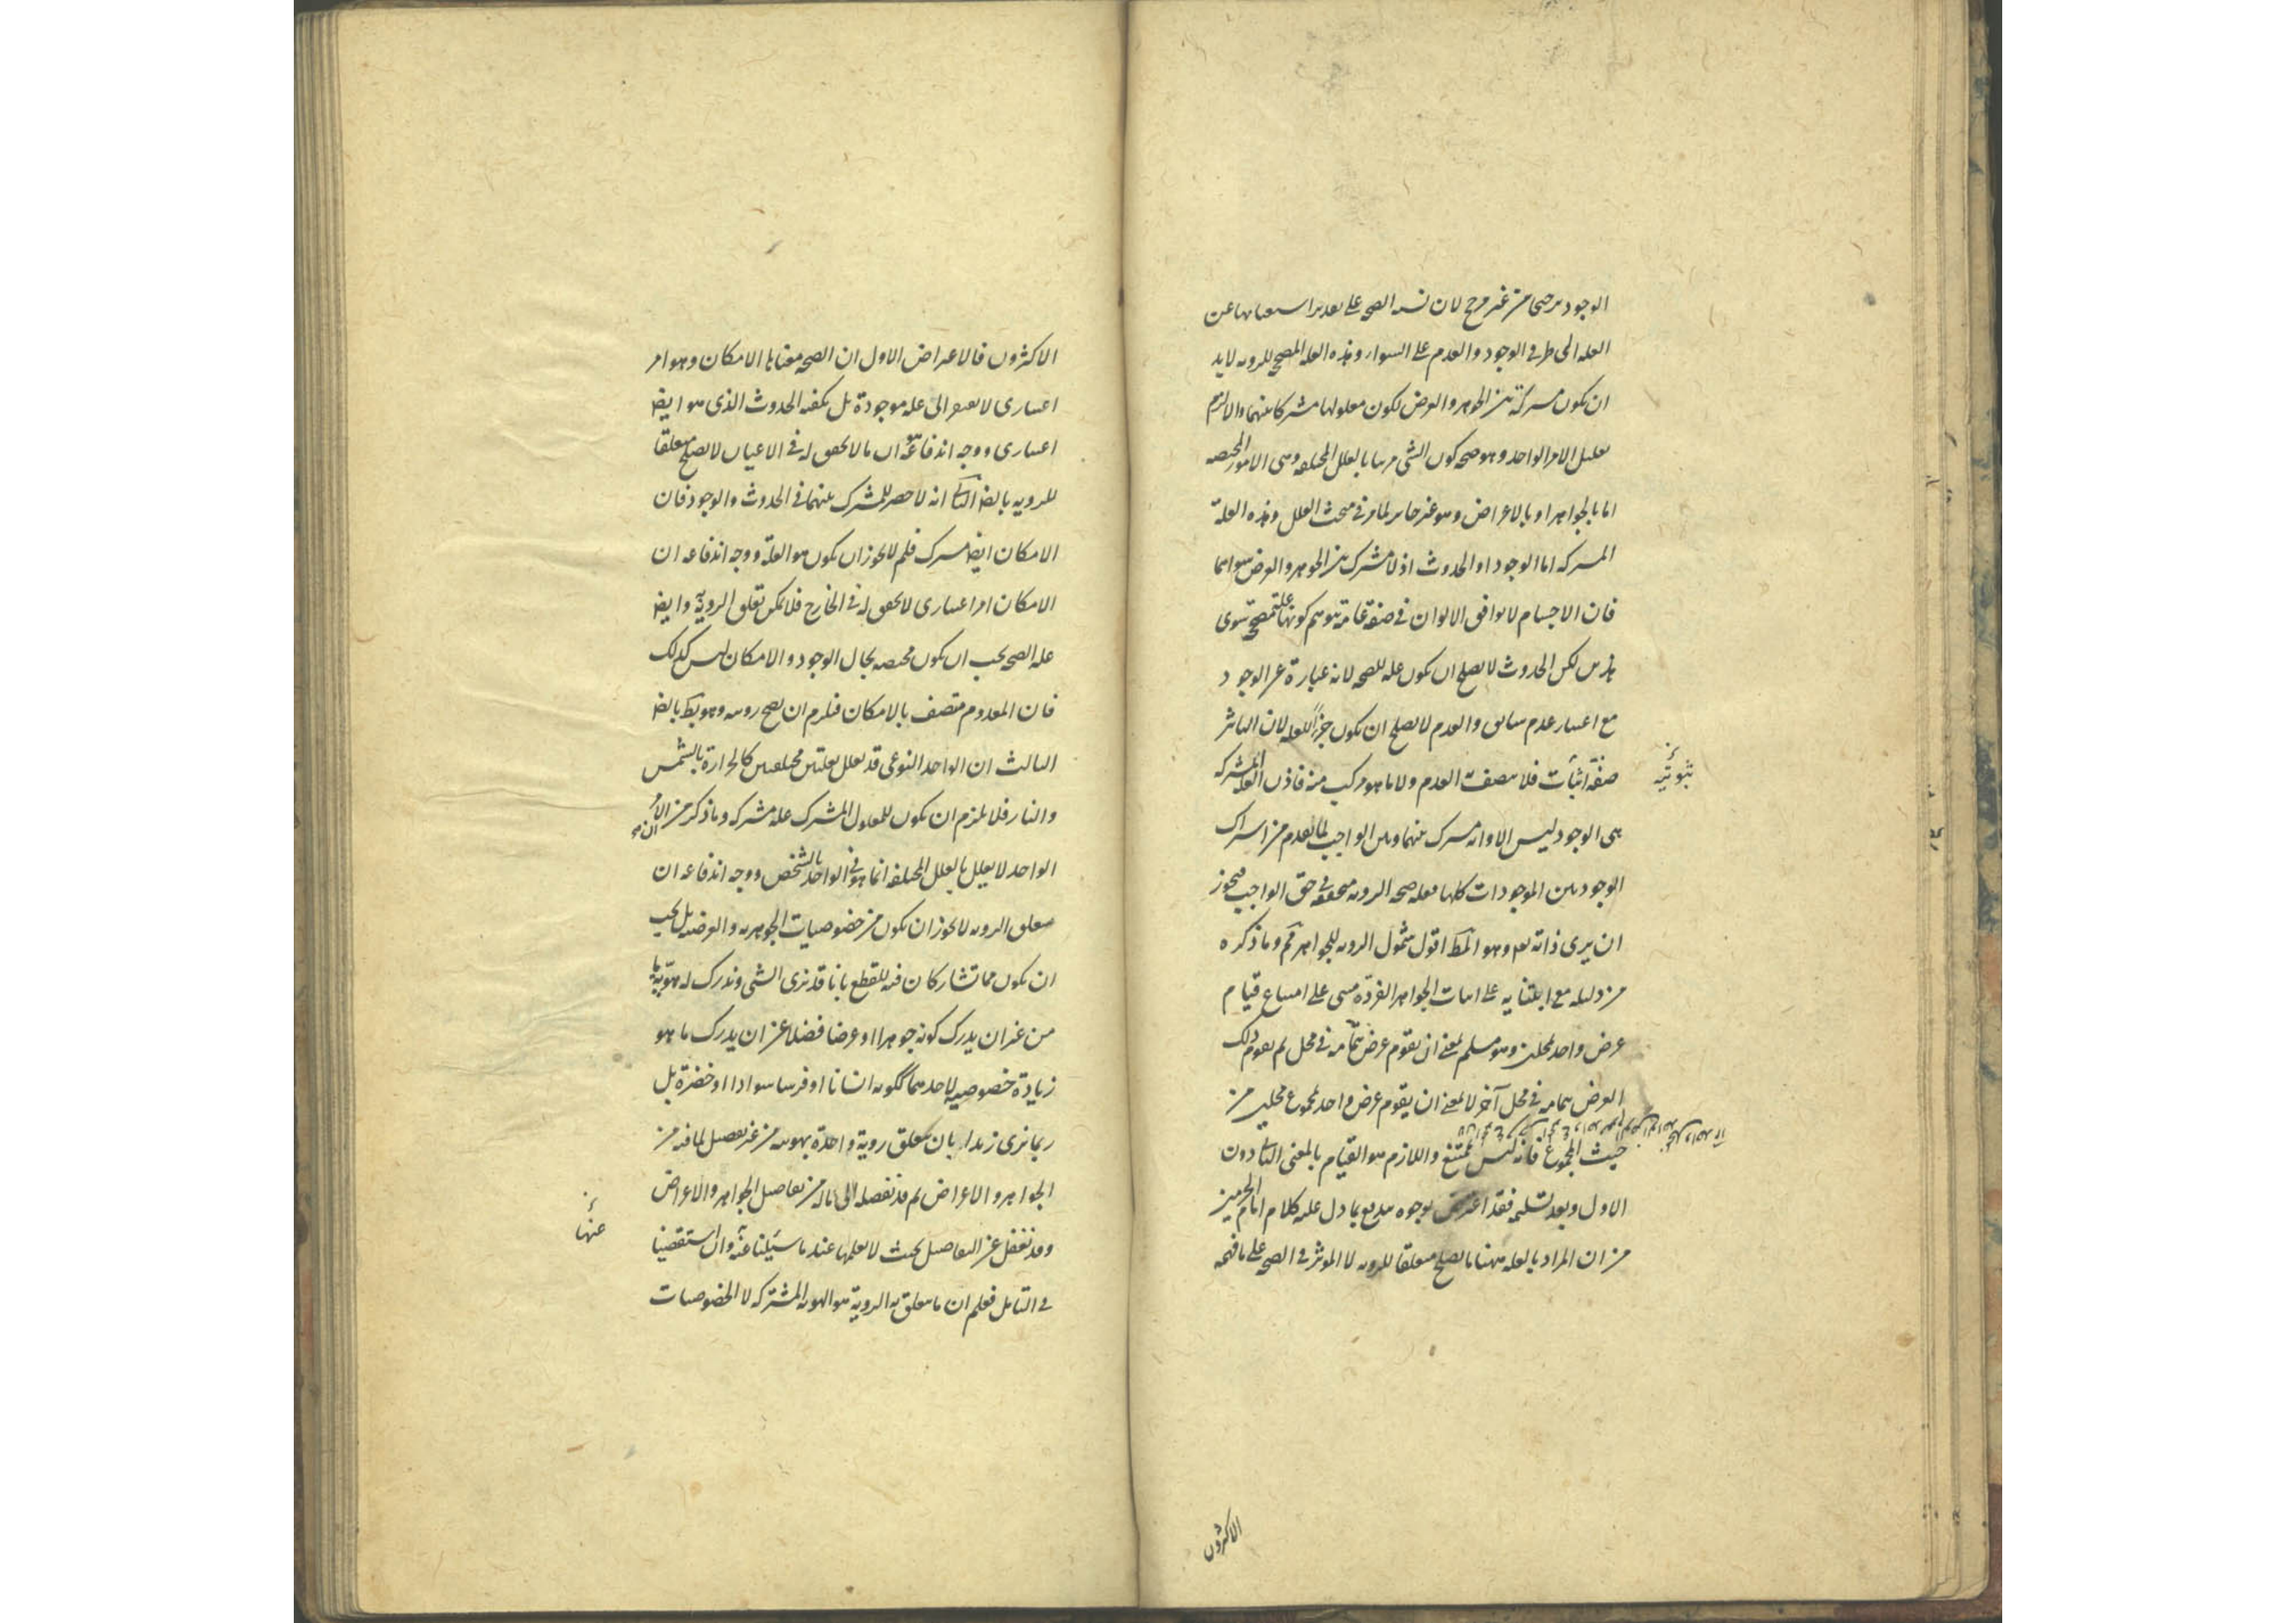 الوجود مرجحا من غير مرجح لان نسبة الصحة على تقدير استغنائها عن
العلة الى طرفي الوجود والعدم على السواء وهذه العلة المصححة للروية لابد
ان يكون مشتركة بين الجوهر والعرض ليكون معلولها مشتركا بينهما والا لزم
تعليل الامر الواحد وهو صحة كون الشئ مرئيا بالعلل المختلفة وهى الامور المختصة
اما بالجواهر او بالاعراض وهو غير جائز لما مر في مبحث العلل وهذه العلة
المشتركة اما الوجود او الحدوث اذ لا مشترك بين الجوهر والعرض سواهما
فان الاجسام لا يوافق الالوان في صفة عامة يتوهم كونها علة مصححة سوى
هذين لكن الحدوث لا يصلح ان يكون علة للصحة لانه عبارة عن الوجود
مع اعتبار عدم سابق والعدم لا يصلح ان يكون جزءا للعلة لان التاثير
صفة اثبات فلا يتصف العدم ولا ما هو مركب منه فاذن العلة المشتركة
ثبوتية
هى الوجود ليس الا وانه مشترك بينهما وبين الواجب لما تقدم من اشتراك
الوجود بين الموجودات كلها فعلة صحة الروية متحققة في حق الواجب فيجوز
ان يرى ذاته تعالى وهو المط اقول شمول الروية للجواهر مم وما ذكره
من دليله مع ابتنايه على اثبات الجواهر الفردة مبنى على امتناع قيام
عرض واحد لمحلين وهو مسلم بمعنى ان يقوم عرض بتمامه في محل لم يقوم ذلك
العرض بتمامه في محل آخر لا بمعنى ان يقوم عرض واحد لمجموع محلين من
حيث المجموع فانه ليس بممتنع واللازم هو القيام بالمعنى الثانى دون
الاول وبعد تسليمه فقد اعترض بوجوه يندفع بما دل عليه كلام امام الحرمين
من ان المراد بالعلة ههنا ما يصلح متعلقا للروية لا الموثر في الصحة على ما فهمه
الاكثرون
الاكثرون فالاعتراض الاول ان الصحة معناها الامكان وهو امر
اعتبارى لا يفتقر الى علة موجودة بل يكفيه الحدوث الذى هو ايضا
اعتبارى ووجه اندفاعه هو ان ما لا تحقق له في الاعيان لا يصلح متعلقا
للروية بالضرورة الثانى انه لا حصر للمشترك بينهما في الحدوث والوجود فان
الامكان ايضا مشترك فلم لا يجوز ان يكون هو العلة ووجه اندفاعه ان
الامكان امر اعتبارى لا تحقق له في الخارج فلا يمكن تعلق الروية وايضا
علة الصحة يجب ان يكون مختصة بحال الوجود والامكان ليس كذلك
فان المعدوم متصف بالامكان فيلزم ان يصح رويته وهو بط بالضرورة
الثالث ان الواحد النوعى قد يعلل بعلتين مختلفتين كالحرارة بالشمس
والنار فلا يلزم ان يكون للمعلول المشترك علة مشتركة وما ذكر من ان الامر
الواحد لا يعلل بالعلل المختلفة انما هو في الواحد بالشخص ووجه اندفاعه ان
متعلق الروية لا يجوز ان يكون من خصوصيات الجوهرية والعرضية بل يجب
ان يكون مما تشاركان فيه للقطع بانا قد نرى الشئ وندرك له هوية ما
من غير ان يدرك كونه جوهرا او عرضا فضلا عن ان يدرك ما هو
زيادة خصوصية لاحدهما ككونه انسانا او فرسا سوادا او خضرة بل
ربما نرى زيدا بان يتعلق روية واحدة بهويته من غير تفصيل لما فيه من
الجواهر والاعراض ثم قد نفصله الى ماله من تفاصيل الجواهر والاعراض
وقد نغفل عن التفاصيل بحيث لا نعلمها عند ما سئلنا عنه وان استقصينا
عنها
في التامل فعلم ان ما يتعلق به الروية هو الهوية المشتركة لا الخصوصيات